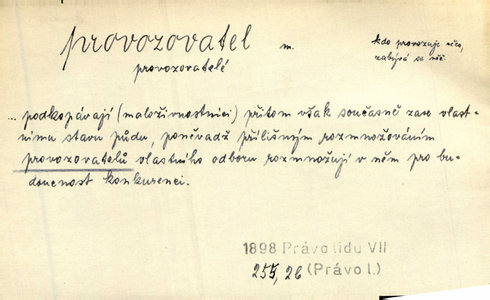 provozovatel m. kdo provozuje něco,
zabývá se něč.
provozovatelé
... podkopávají (maloživnostníci) přitom však současně zase vlast-
nímu stavu půdu, poněvadž přílišným rozmnožováním
provozovatelů vlastního odboru rozmnožují v něm pro bu-
doucnost konkurenci.
1898 Právo lidu VII
255, 26 (Právo l.)